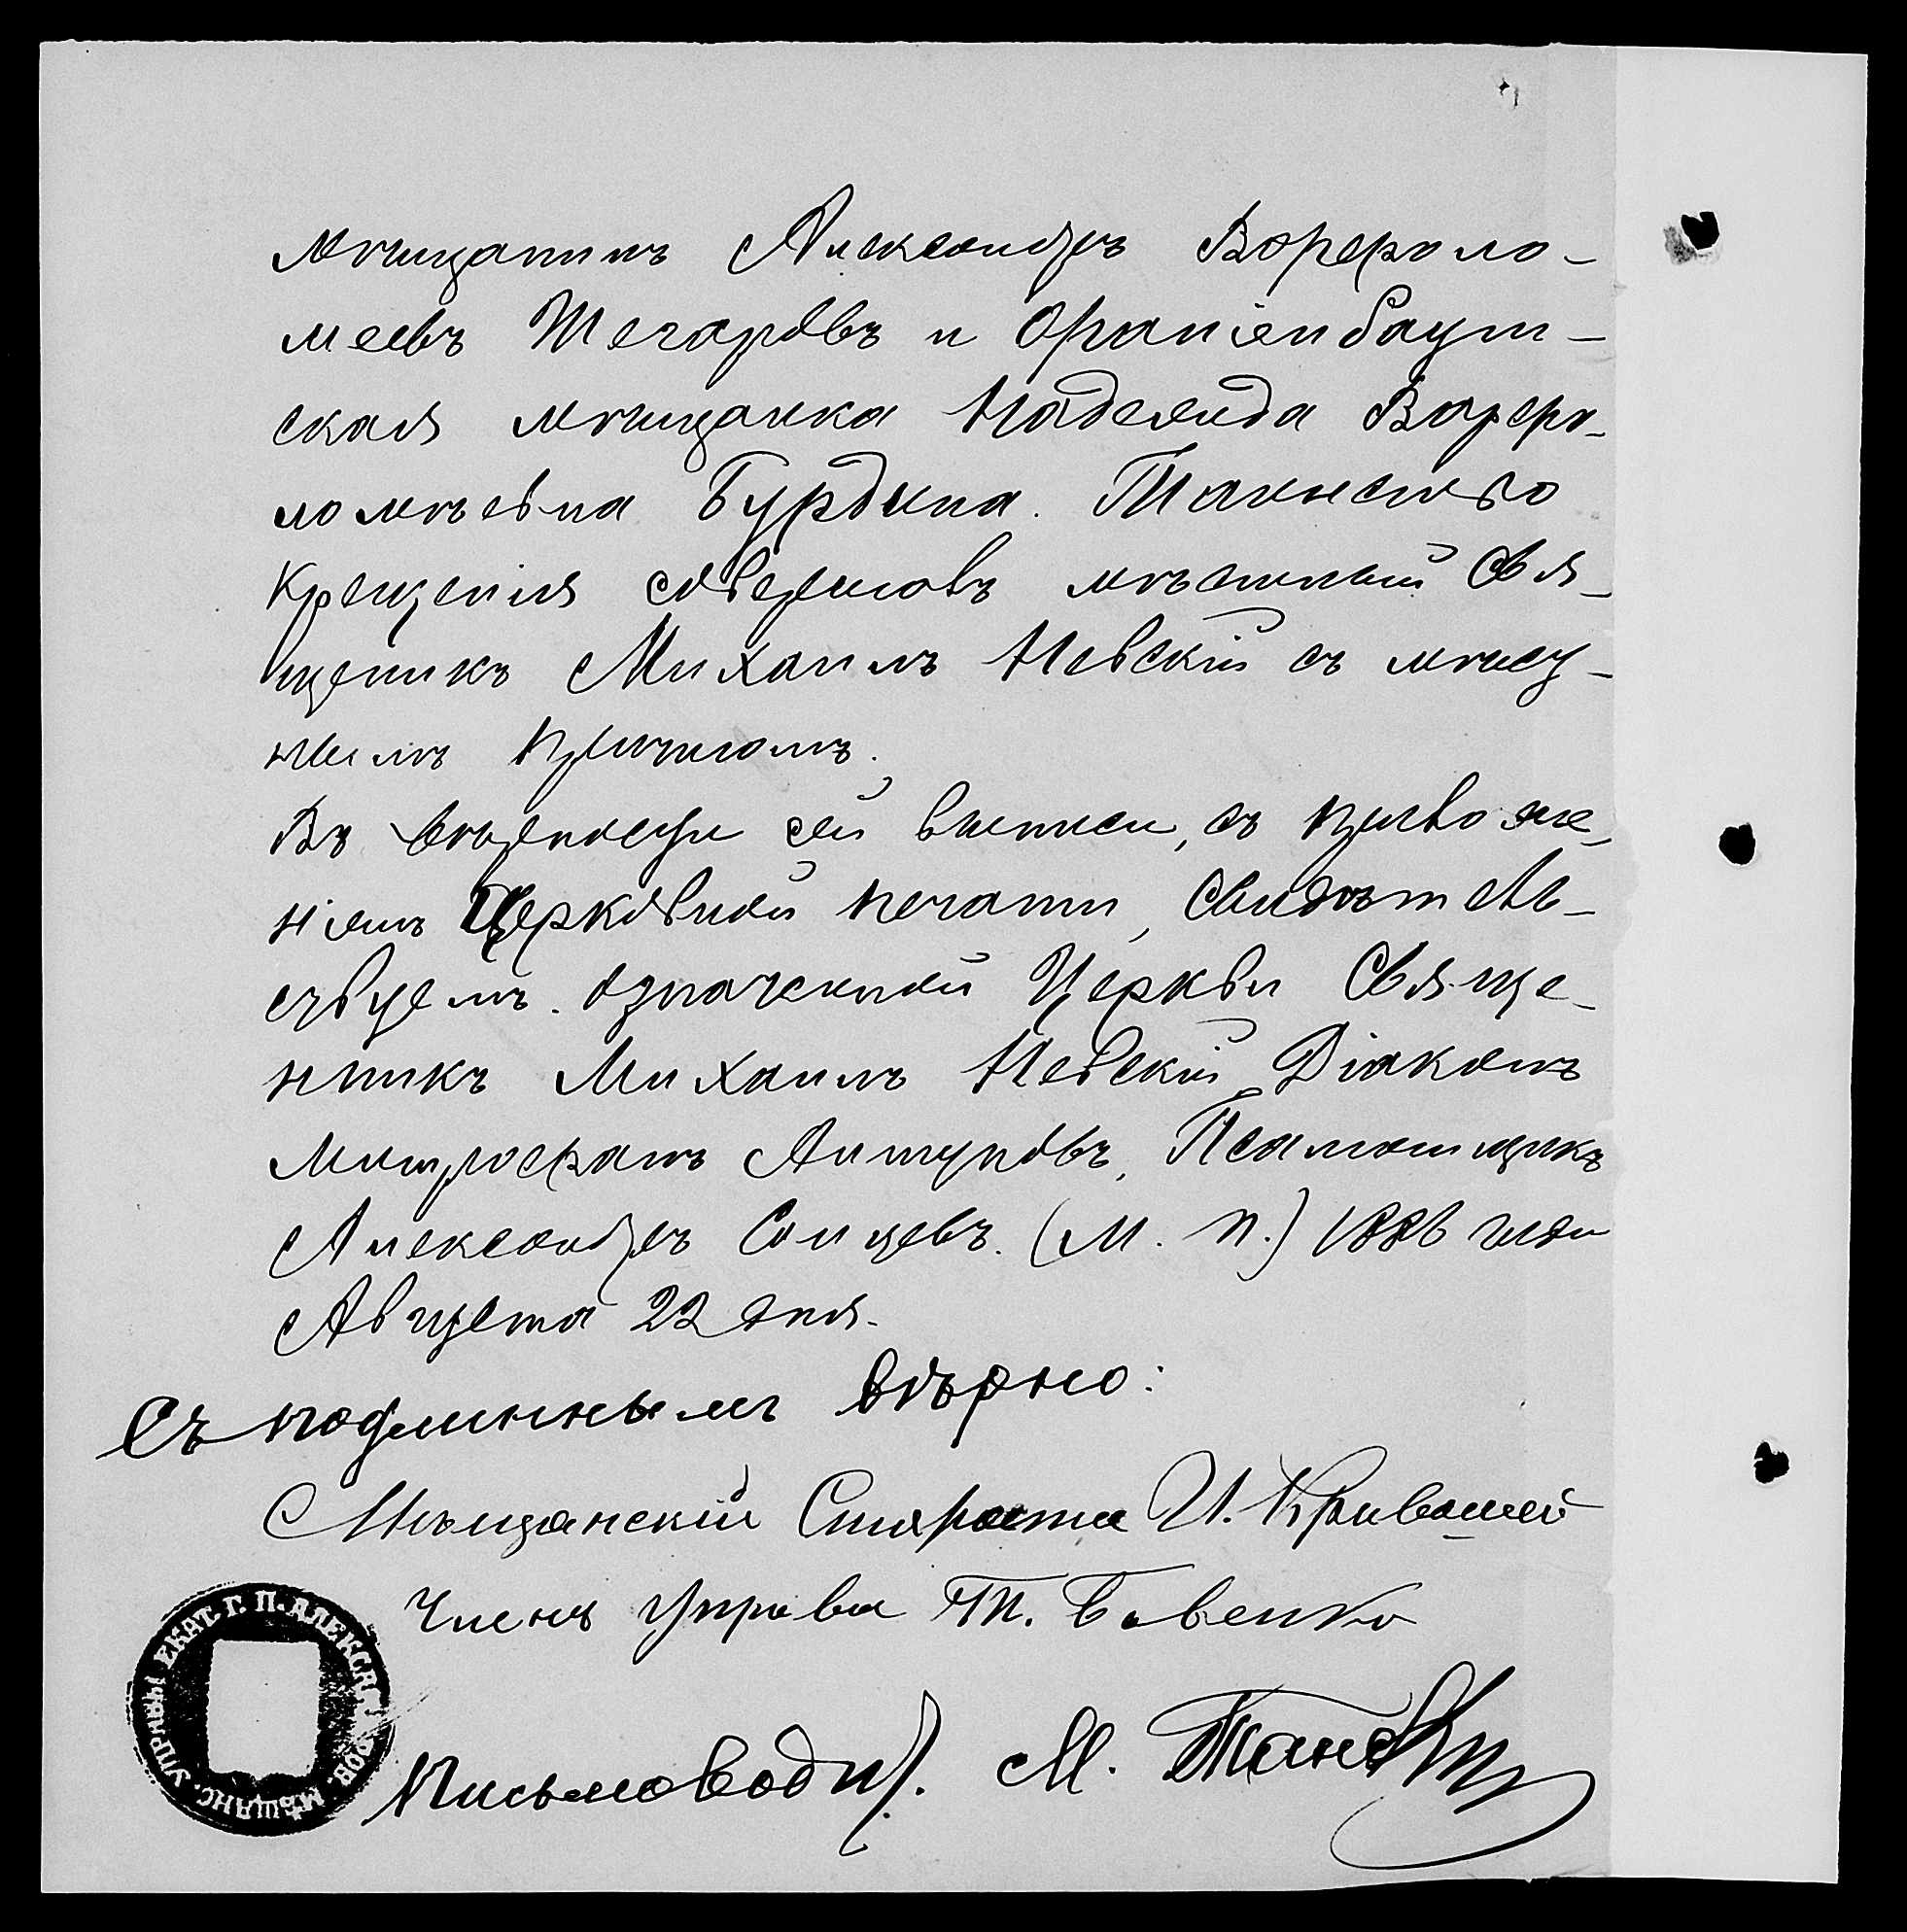 мѣщанинъ Александръ Ворфоло-
меевъ Шегаровъ и Ораніенбаум-
ская мѣщанка Надежда Варфо-
ломѣевна Бурдина. Таинство
Крещенія совершовъ мѣстный Свя-
щеникъ Михаилъ Невскій съ
нымъ причтомъ.
Въ вѣрности сей выписи, съ приложе-
ніемъ Церковной печати, Свидѣтель-
ствуемъ. означенной Церкви Свяще-
нникъ Михаилъ Невскій, Діаконъ
Митрофанъ Антуновъ, Псаломщикъ
Александръ Солнцевъ. (М. П.) 1886 года
Августа 22 дня.
Съ подлиннымъ вѣрно:
Мѣщанскій Староста И. Кривошей
Членъ Управы Т. Бабенко
Письмовод. М.
ЕКАТ. Г. П. АЛЕКСА РОВ. МѢЩАНС. УПРАВЫ